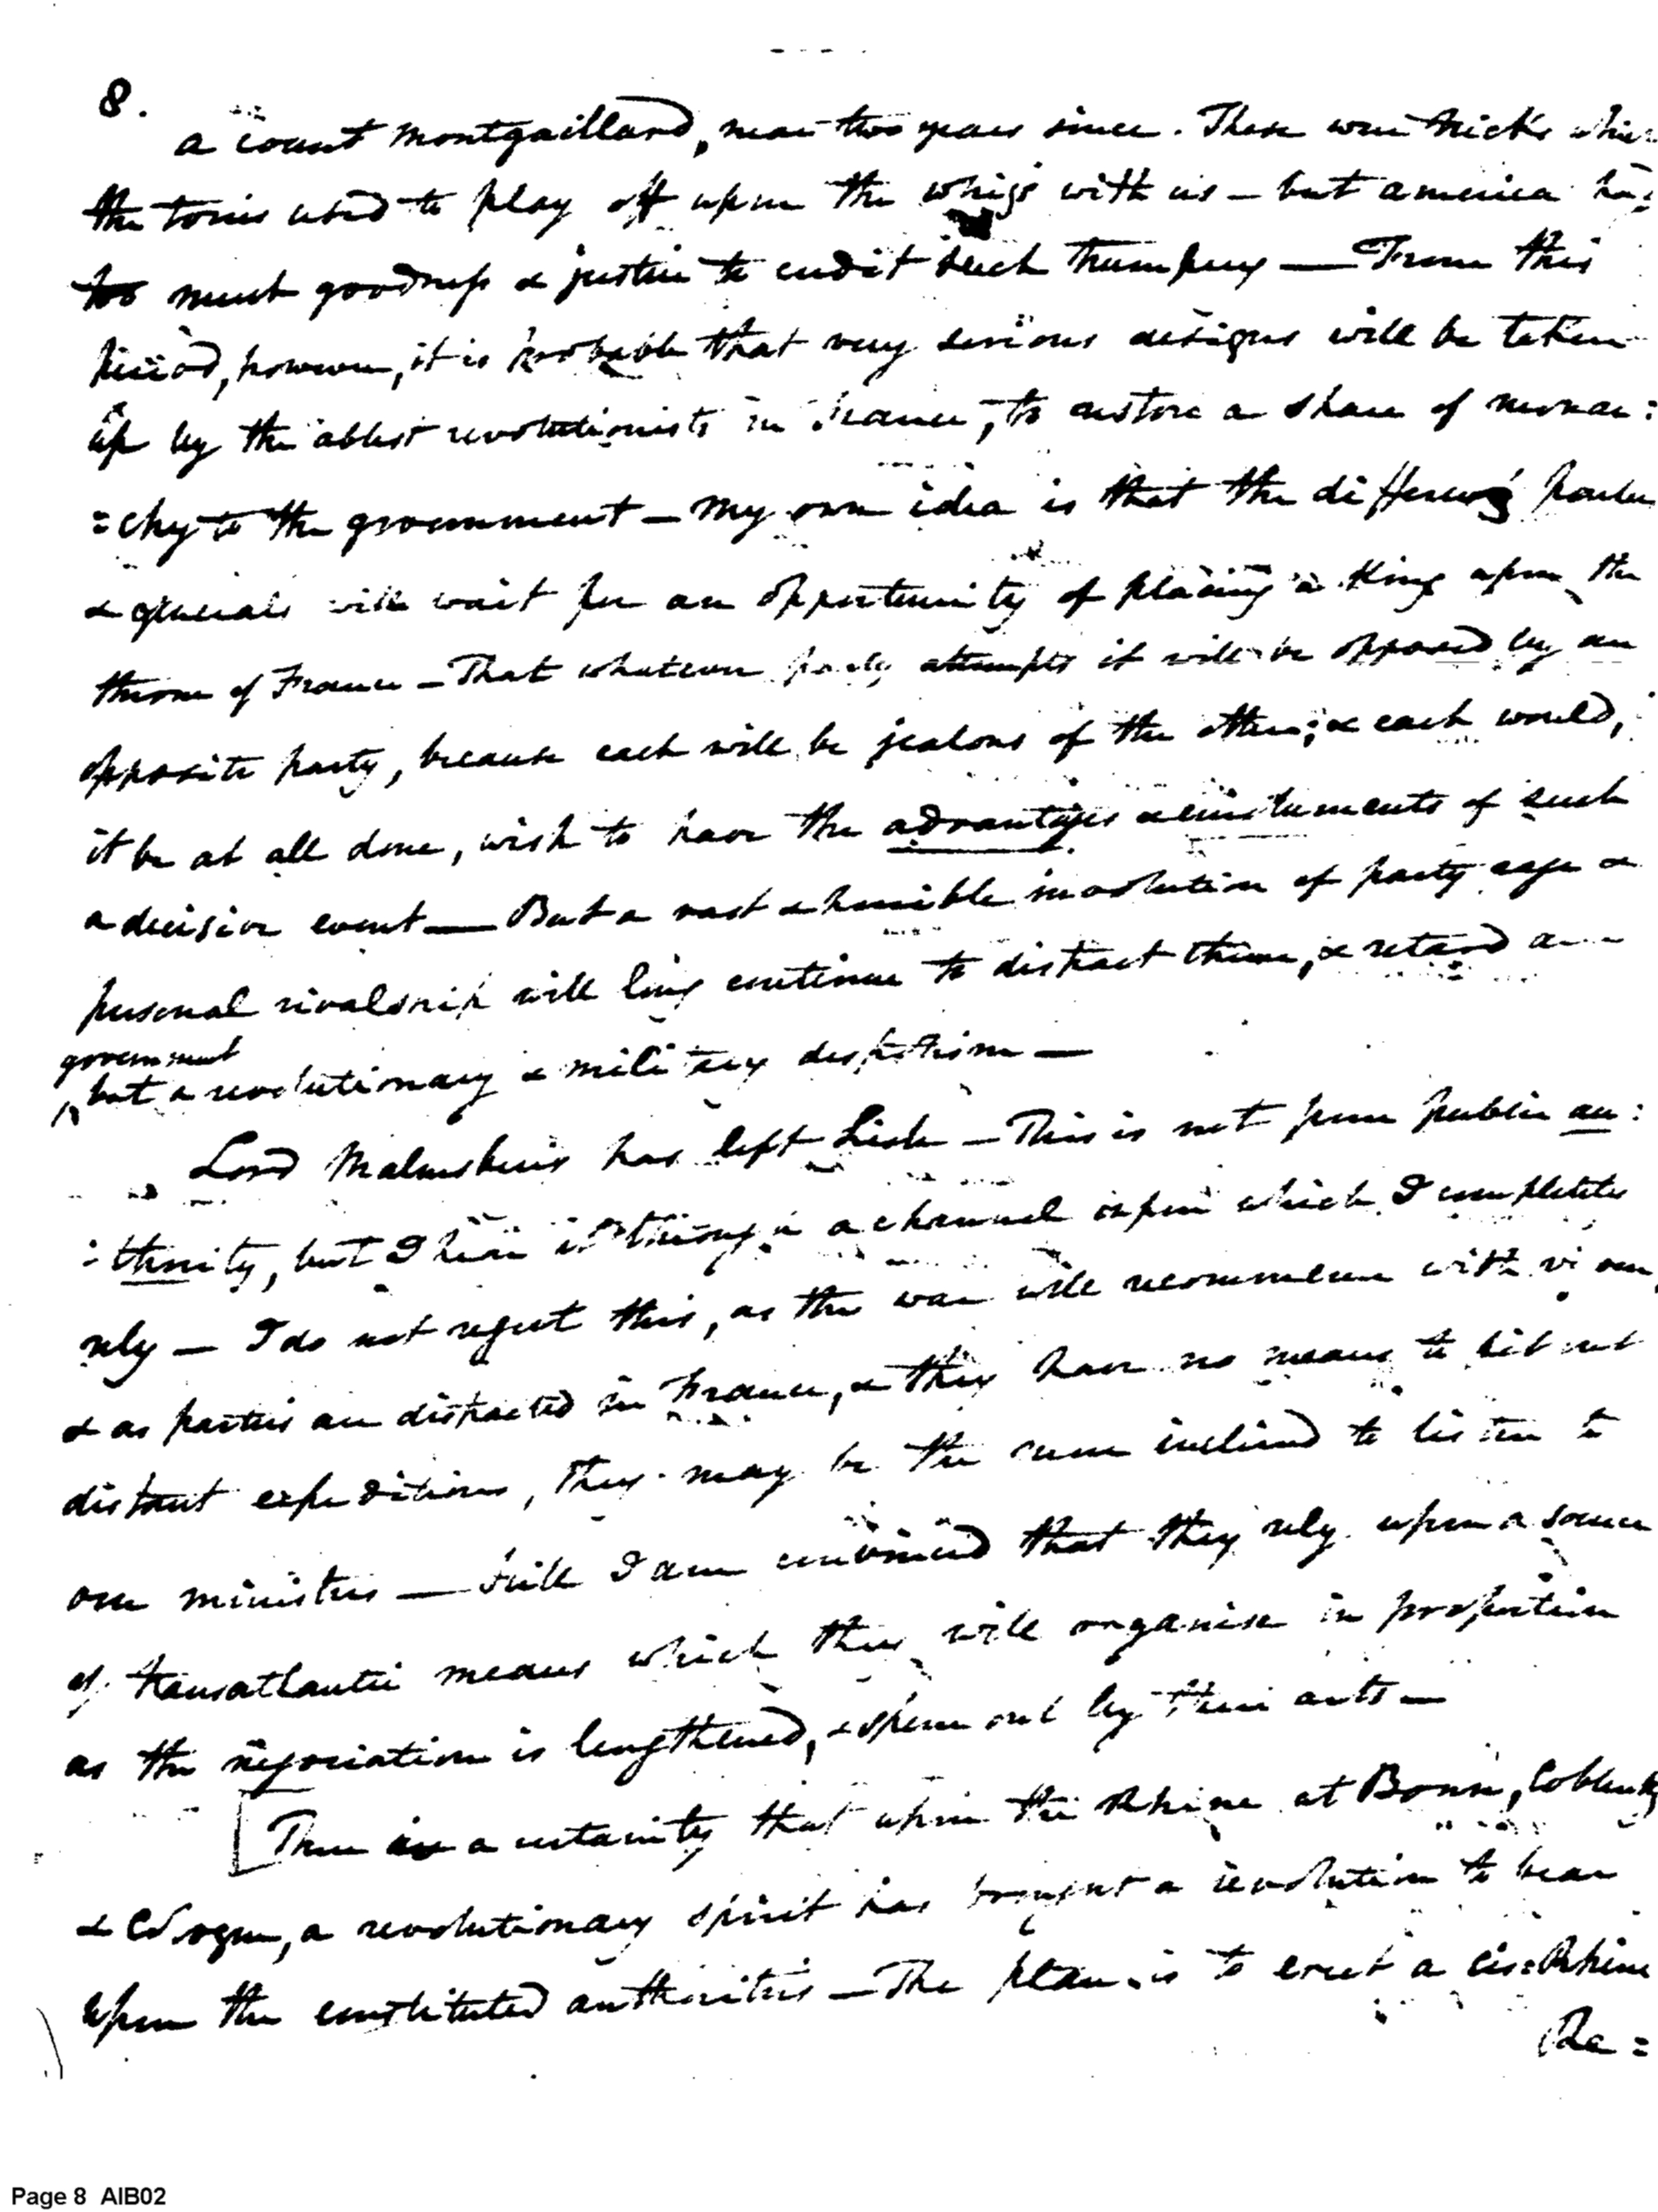 8.
a count Montgaillard, near two years since. These were tricks which
the tories used to play off upon the whigs with us – but america has
too much goodness & justice to credit such trumpery — From this
period, however, it is probable that very serious designs will be taken
up by the ablest revolutionists in France, to restore a share of monar:
=chy to the government – My own idea is that the differing parties
& generals will wait for an opportunity of placing a King upon the
throne of France – That whatever party attempts it will be opposed by an
opposite party, because each will be jealous of the other; & each would,
it be at all done, wish to have the advantages & emoluments of such
a decisive event — But a vast & horrible involution of party rage &
personal rivalship will long continue to distract them, & retard a
government
but a revolutionary & military despotism —
Lord Malmsbury has left Lisle – This is not from public au:
:thority, but I hear it through a channel upon which I completely
rely — I do not regret this, as the war will recommence with
& as parties are distracted in France, & they have no means to fit out
distant expeditions, they may be the more inclined to listen to
our ministers — Still I am convinced that they rely upon a source
of transatlantic means which they will organise in proportion
as the negociation is lengthened, & spun out by their arts —
[There is a certainty that upon the Rhine at Bonn, Coblentz
& Cologne, a revolutionary spirit has brought a revolution to bear
upon the constituted authorities – The plan is to erect a cis=Rhine
Re =
Page 8 AIB02